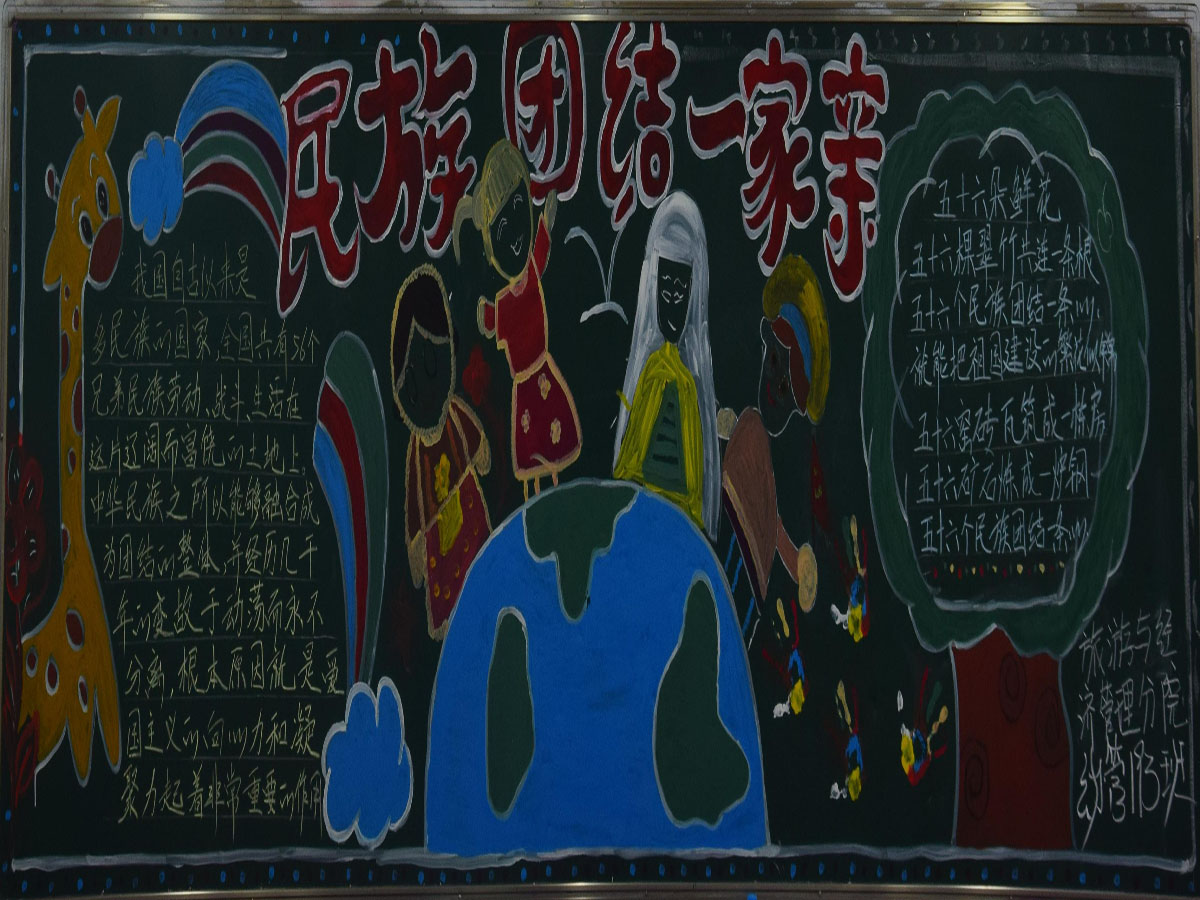 民族团结一家亲
我国自古以来是
多民族的国家,全国共有56个
兄弟民族劳动、战斗、生活在
这片辽阔而富饶的土地上。
中华民族之所以能够融合成
为团结的整体,并经历几千
年的变故于动荡而永不
分离,根本原因就是爱
国主义的向心力和凝
聚力起着非常重要的作用
五十六朵鲜花
五十六棵翠竹共连一条根
五十六个民族团结一条心,
就能把祖国建设的繁花似锦
五十六窑砖瓦筑成一栋房
五十六矿石炼成一炉钢
五十六个民族团结一条心
旅游与经
济管理分院
幼管193班